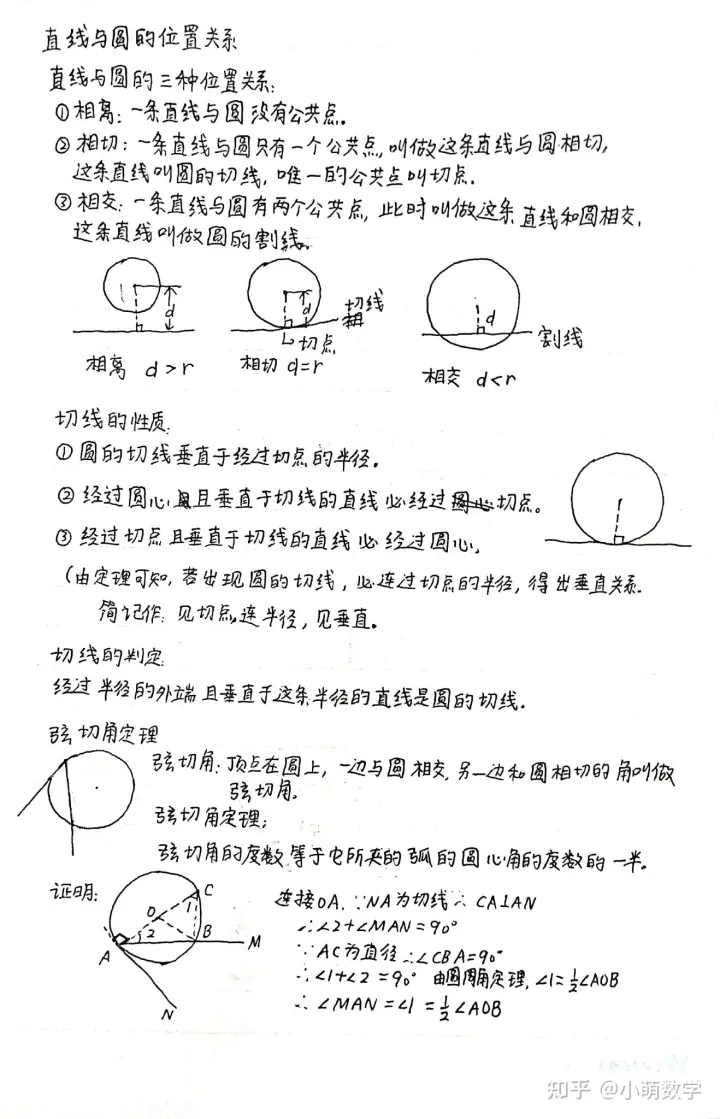 直线与圆的位置关系
直线与圆的三种位置关系:
①相离:一条直线与圆没有公共点。
②相切:一条直线与圆只有一个公共点,叫做这条直线与圆相切,
这条直线叫圆的切线,唯一的公共点叫切点.
③相交:一条直线与圆有两个公共点,此时叫做这条直线和圆相交,
这条直线叫做圆的割线。
d
d
切线
切点
d
割线
相离 d>r
相切 d=r
相交 d<r
切线的性质:
①圆的切线垂直于经过切点的半径.
②经过圆心且垂直于切线的直线必经过切点。
③经过切点且垂直于切线的直线必经过圆心。
(由定理可知,若出现圆的切线,必连过切点的半径,得出垂直关系.
简记作:见切点,连半径,见垂直。
切线的判定:
经过半径的外端且垂直于这条半径的直线是圆的切线.
弦切角定理
弦切角:顶点在圆上,一边与圆相交,另一边和圆相切的角叫做
弦切角.
弦切角定理:
弦切角的度数等于它所夹的弧的圆心角的度数的一半.
证明:
C
1
O
2
B
M
A
N
连接OA.∵NA为切线∴CA⊥AN
∴∠2+∠MAN=90°
∵AC为直径∴∠CBA=90°
∴∠1+∠2=90° 由圆周角定理,∠1=½∠AOB
∴∠MAN=∠1=½∠AOB
知乎 @小萌数学